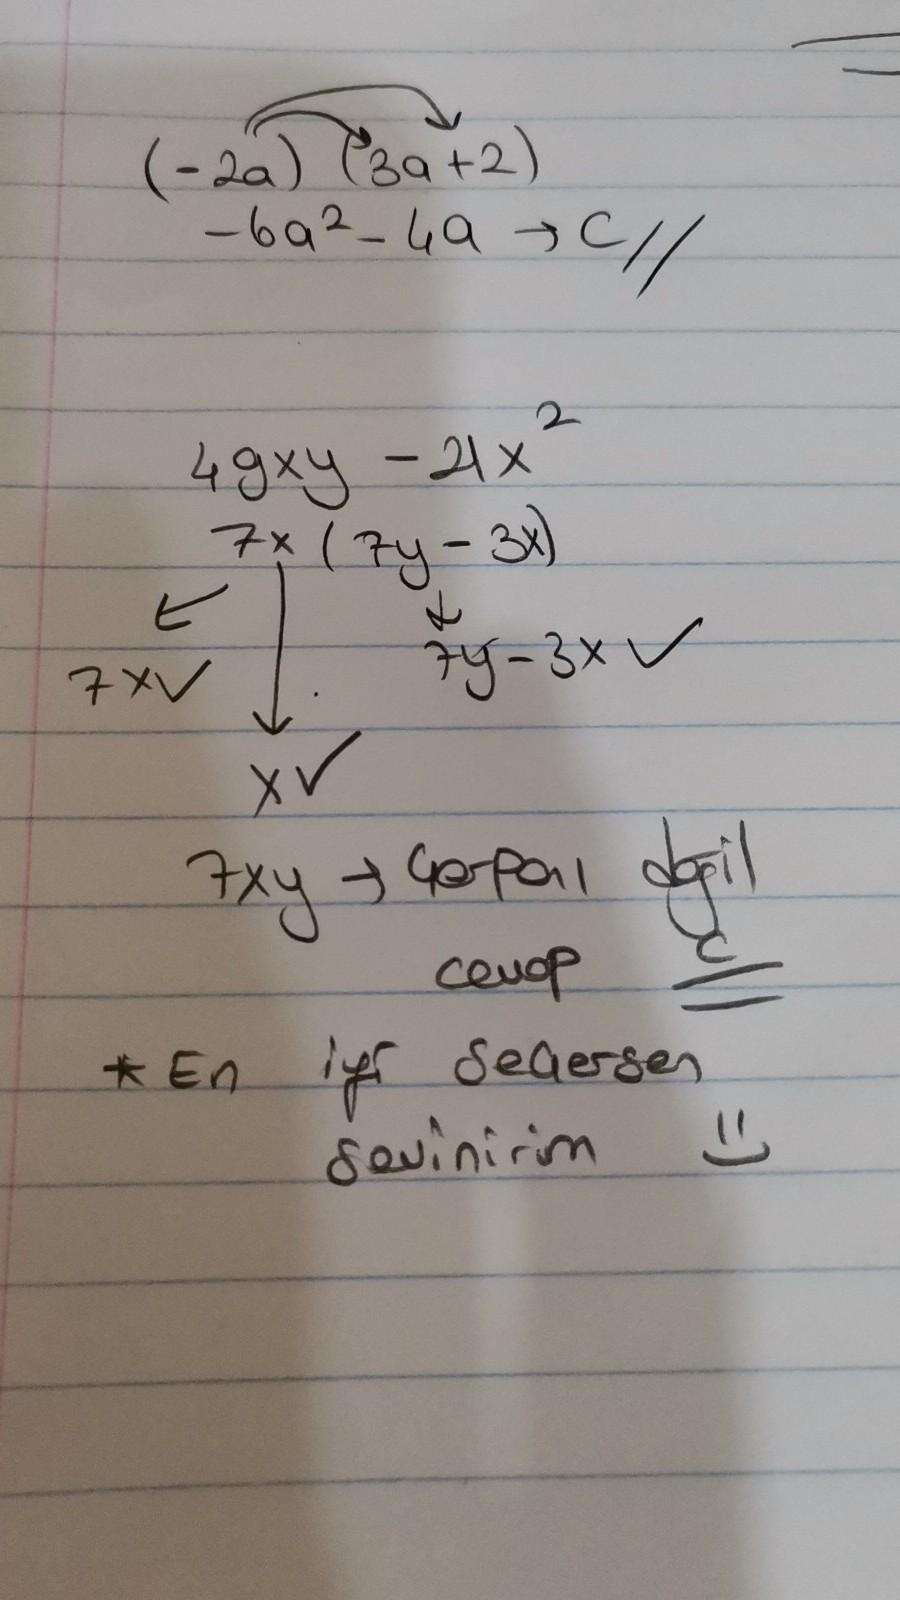 (-2a) (3a+2)
-6a² - 4a → C //
49xy - 21x²
7x (7y - 3x)
7y - 3x ✓
7x ✓
x ✓
7xy → Çarpanı değil
cevap C
* En iyi seçersen
sevinirim :)